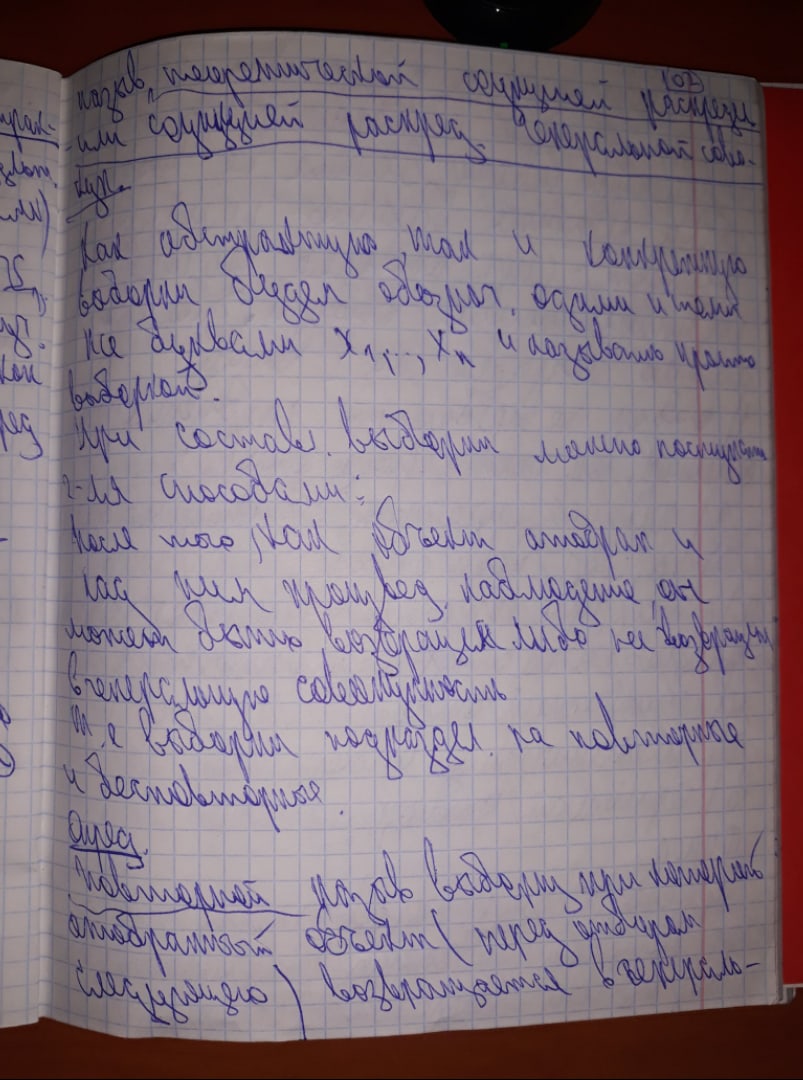 (107)
назыв. теоретической функцией распредел.
или функцией распред. генеральной сово-
куп.
Как абстрактную, так и конкретную
выборки будем обознач. одними и теми
же буквами x₁,..., xₙ и называть просто
выборкой.
При составл. выборки можно поступать
2-мя способами:
после того, как объект отобран и
над ним произвед. наблюдение, он
может быть возвращен либо не возвращен
в генеральную совокупность
т.е выборки подраздел. на повторные
и бесповторные.
Опред.
Повторной назыв выборку при которой
отобранный объект (перед отбором
следующего) возвращается в генераль-